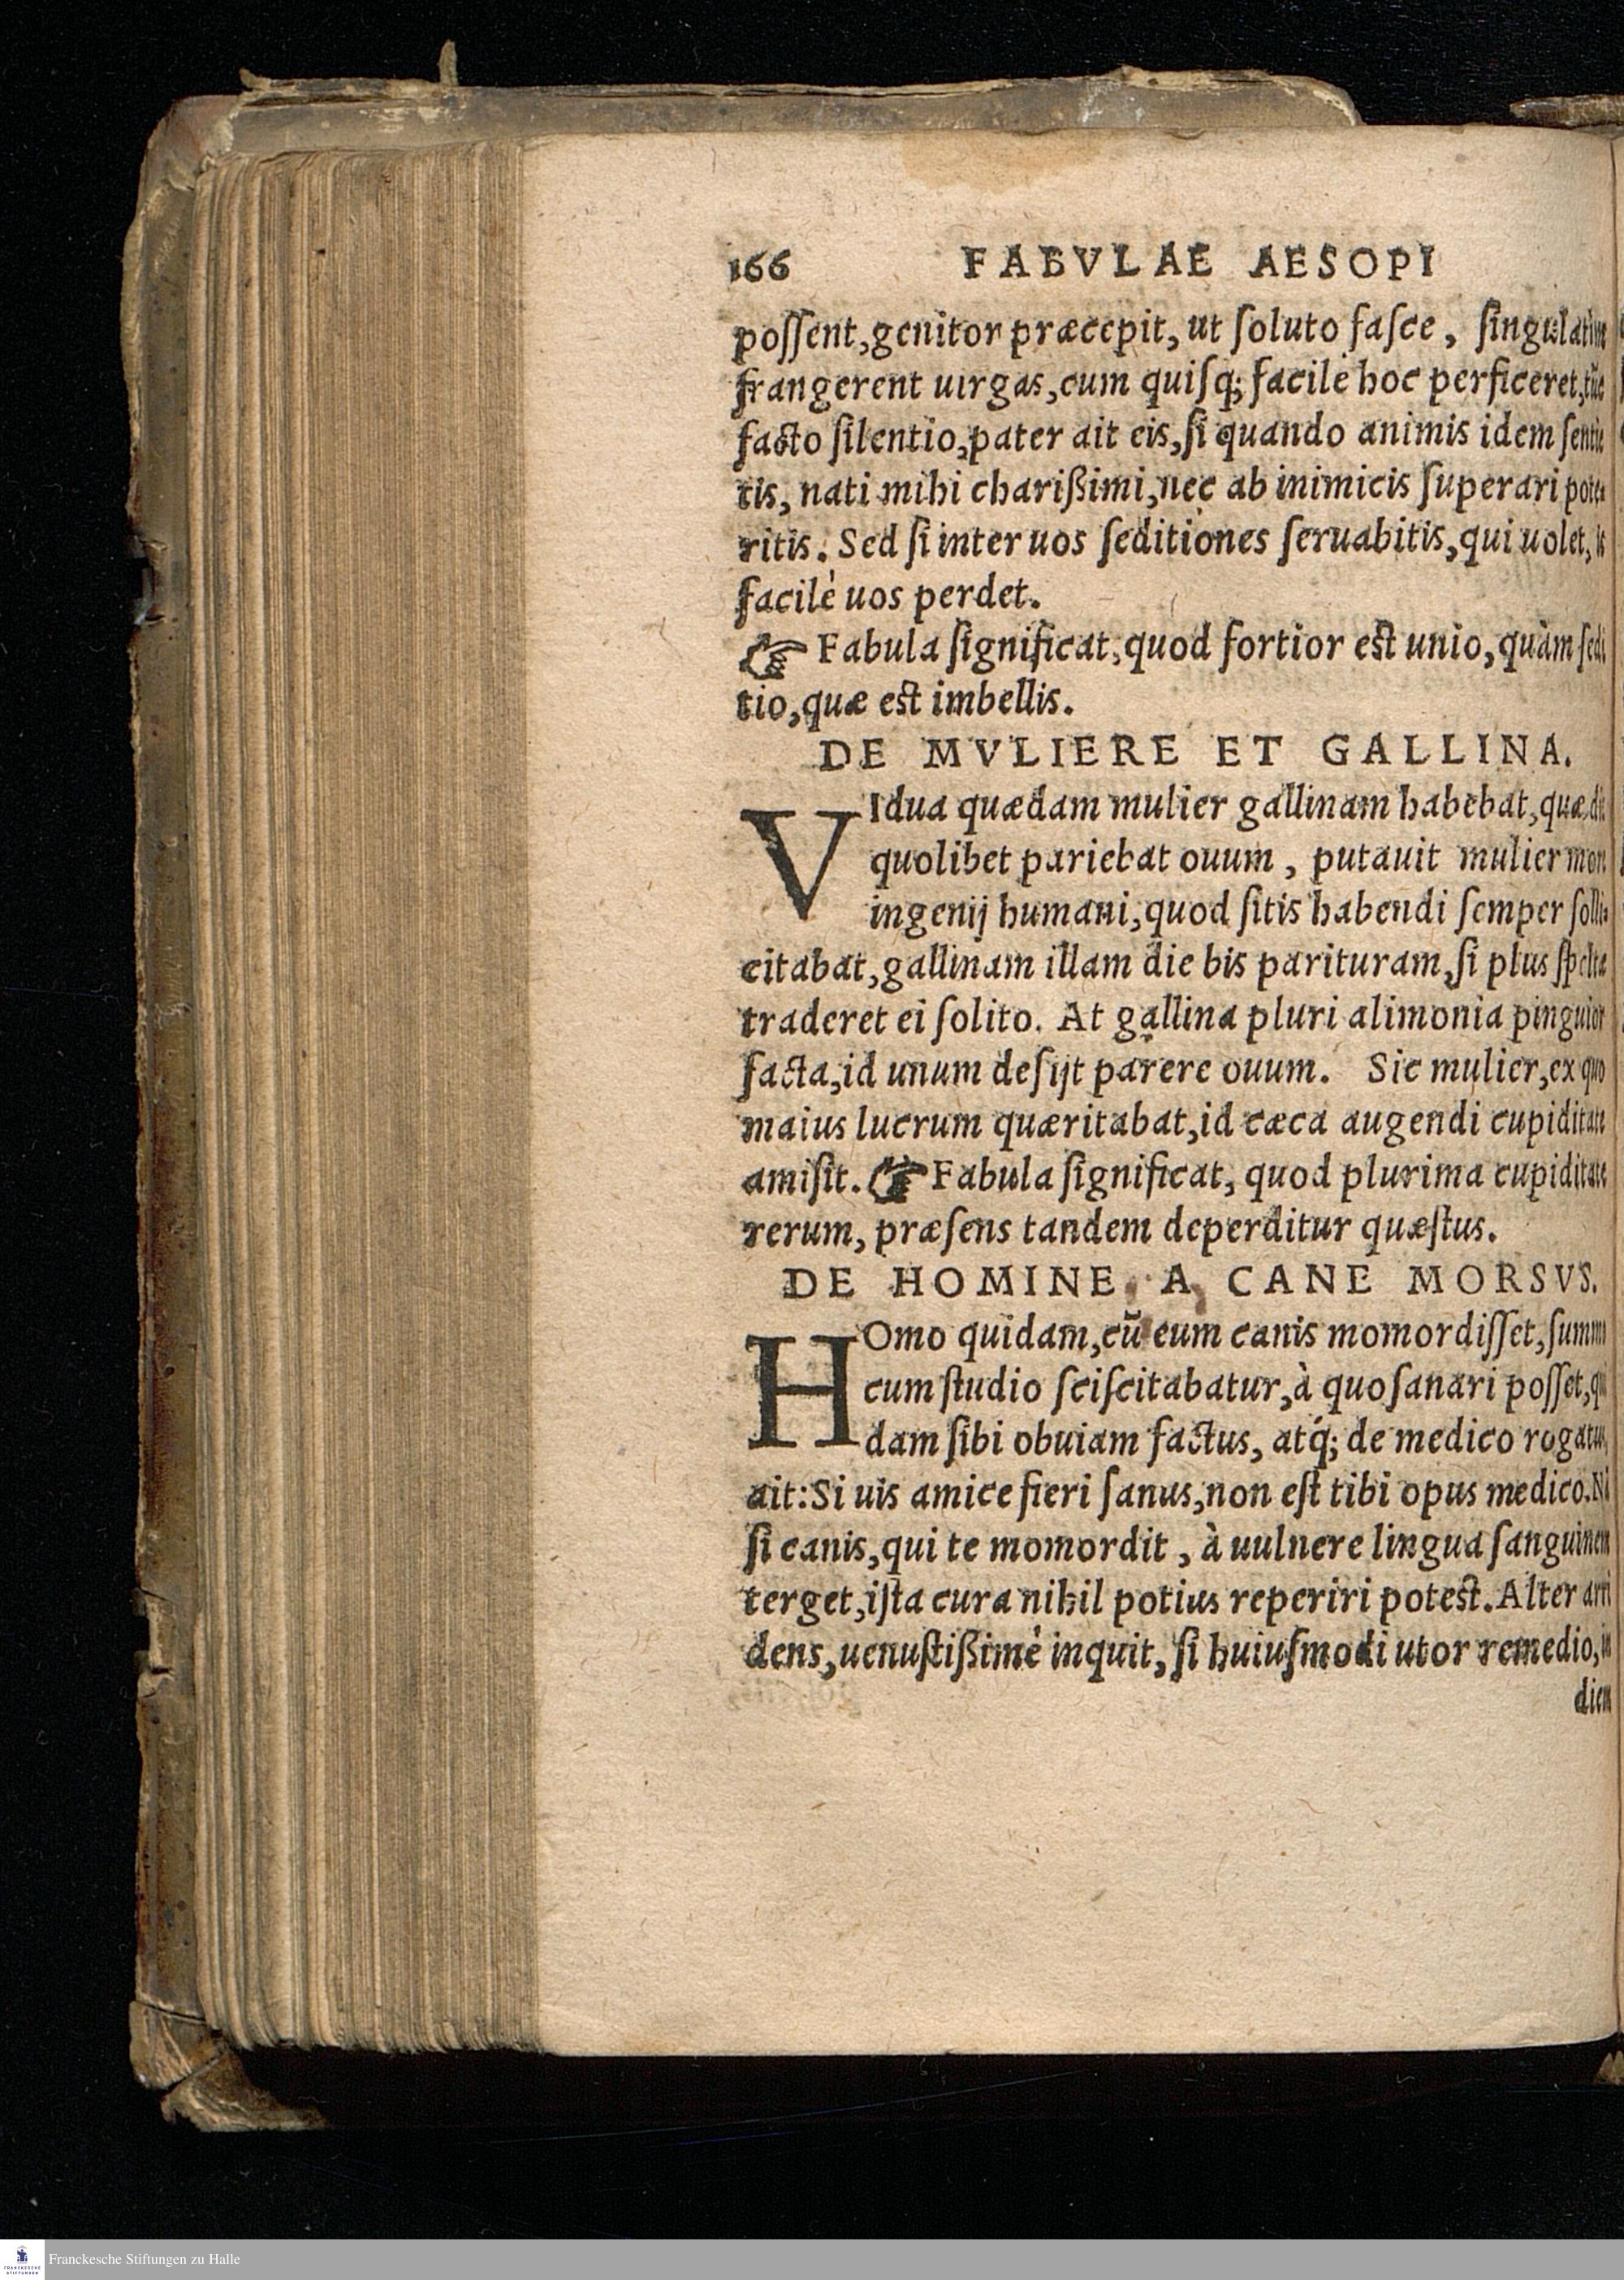 166 FABVLAE AESOPI
poſſent,genitor præcepit, ut ſoluto faſce, ſingulatim
frangerent uirgas,cum quiſq; facilè hoc perficeret,tũc
facto ſilentio,pater ait eis,ſi quando animis idem ſentie
tis, nati mihi charißimi,nec ab inimicis ſuperari pote
ritis. Sed ſi inter uos ſeditiones ſeruabitis,qui uolet, is
facilè uos perdet.
☞ Fabula ſignificat,quod fortior eſt unio,quàm ſedi
tio,quæ eſt imbellis.
DE MVLIERE ET GALLINA.
VIdua quædam mulier gallinam habebat,quæ
quolibet pariebat ouum, putauit mulier
ingenij humani,quod ſitis habendi ſemper ſolli
citabat,gallinam illam die bis parituram,ſi plus
traderet ei ſolito. At gallina pluri alimonia pinguior
facta,id unum deſijt parere ouum. Sic mulier,ex quo
maius lucrum quæritabat,id cæca augendi cupiditate
amiſit. ☞ Fabula ſignificat, quod plurima cupiditate
rerum, præſens tandem deperditur quæſtus.
DE HOMINE A CANE MORSVS.
HOmo quidam,cũ eum canis momordiſſet,
cum ſtudio ſciſcitabatur,à quo ſanari poſſet,
dam ſibi obuiam factus, atq́; de medico rogatus
ait:Si uis amice fieri ſanus,non eſt tibi opus medico.Ni
ſi canis,qui te momordit, à uulnere lingua ſanguinem
terget,iſta cura nihil potius reperiri poteſt.Alter arri
dens,uenuſtißimè inquit, ſi huiuſmodi utor remedio,in
diem
Franckesche Stiftungen zu Halle
FRANCKESCHE
STIFTUNGEN